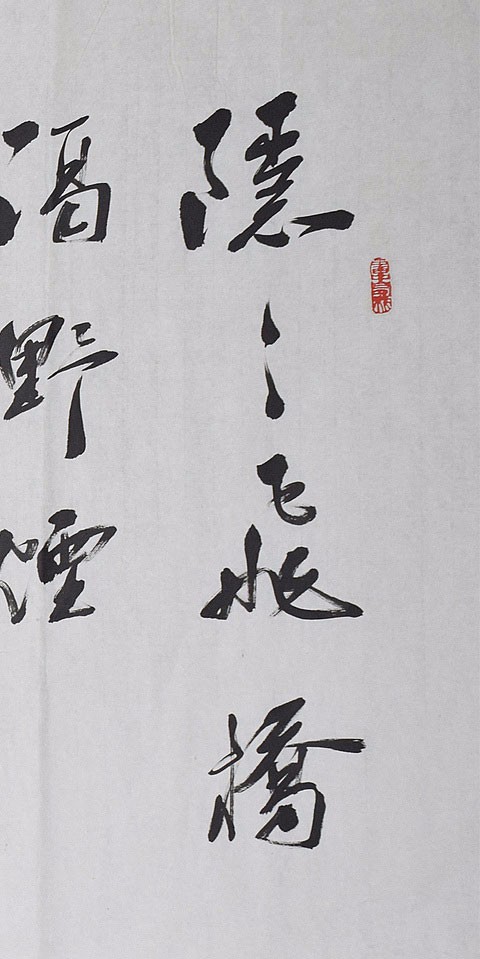 隱〻飛橋
隔野煙